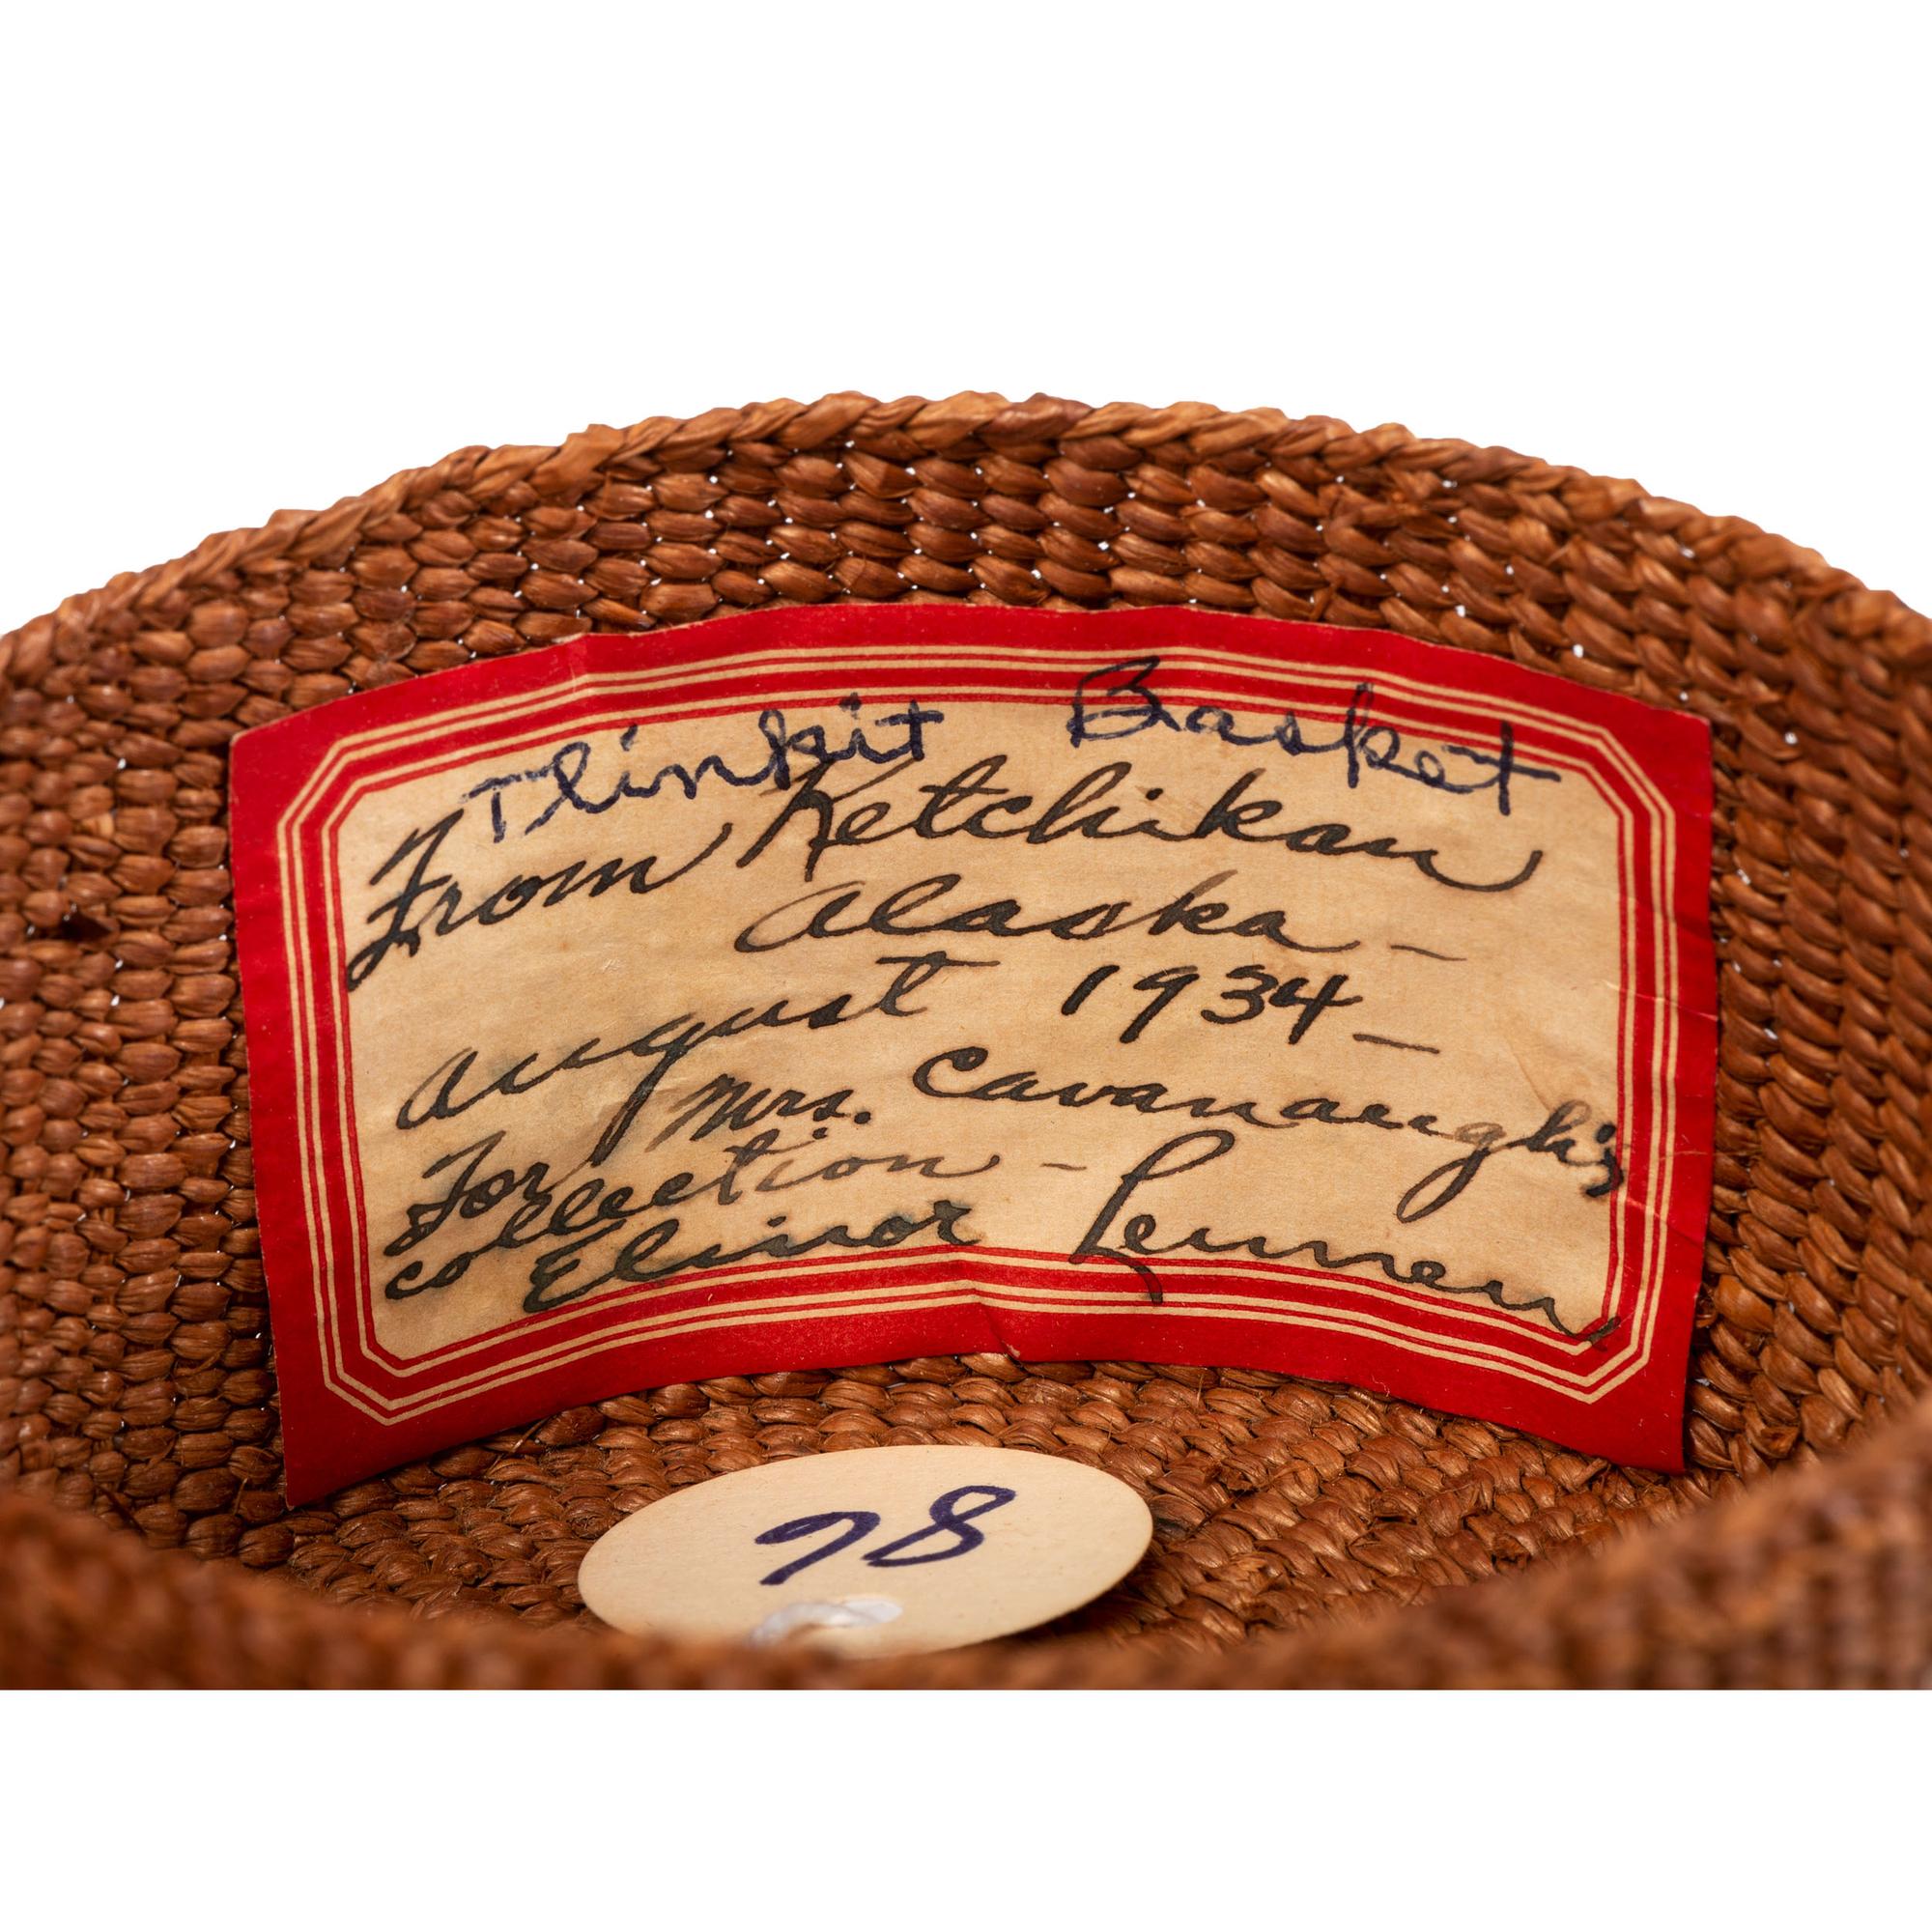 Tlinkit Basket
From Ketchikan
Alaska –
August 1934 –
For Mrs. Cavanaugh's
collection –
Elinor
78